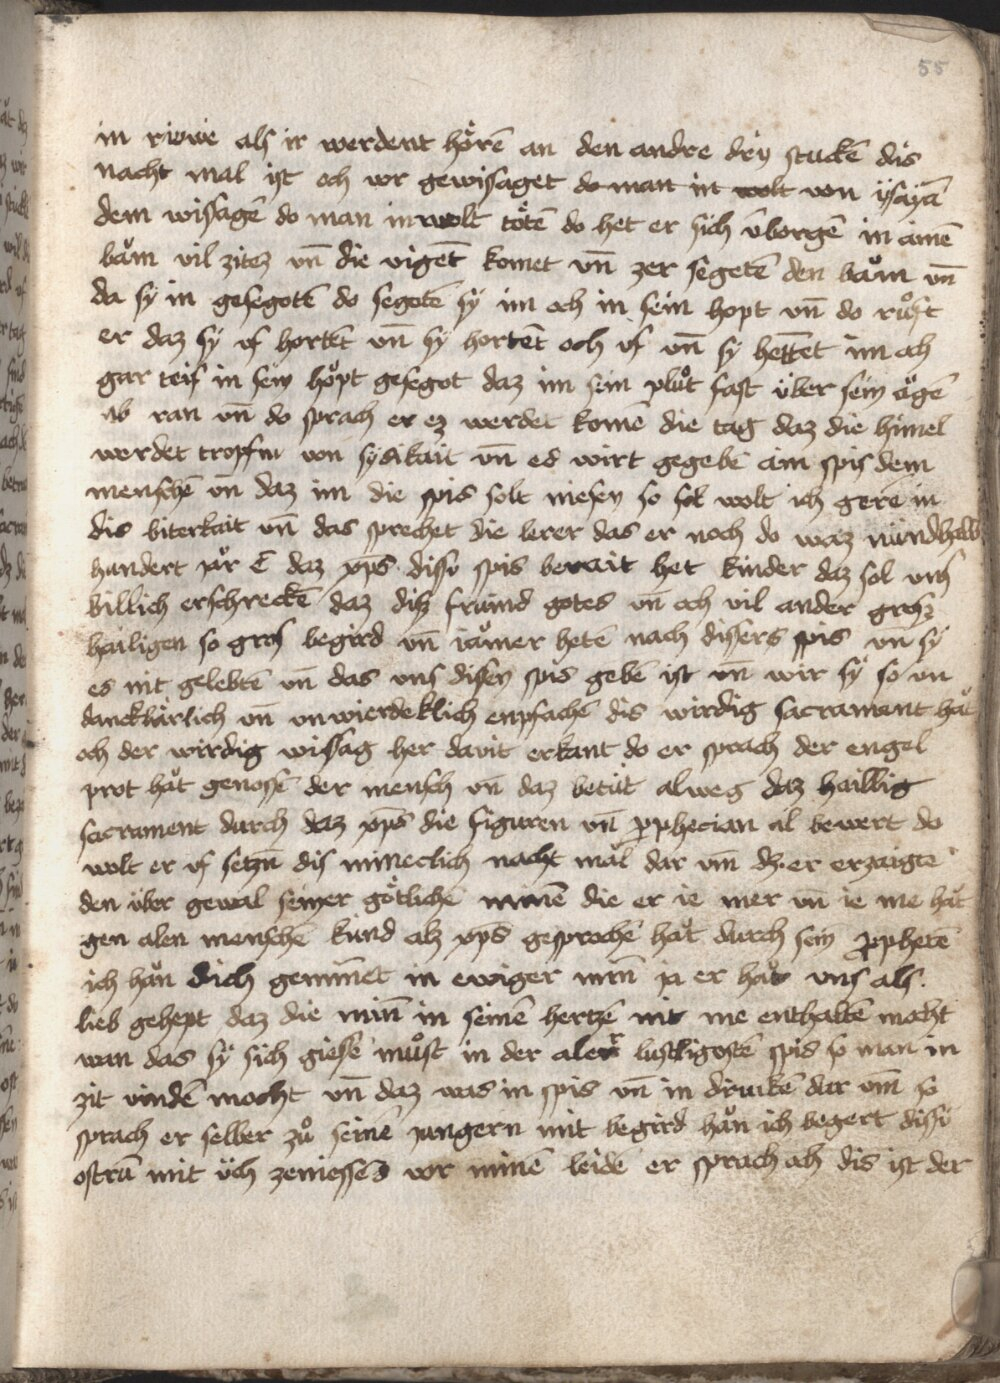 55
in riwe als ir werdent hörē an den andrē dry stuckē dis
nacht mal ist och vor gewissaget do man in wolt von ysayā
dem wissagē do man in wolt tötē do het er sich v̄borgē in ainē
bam̊ vil zitez vn̄ die vigēt komet vn̄ zer segetē den bam̊ vn̄
da sy in gesegotē do segetē sy im och in sein hopt vn̄ do růft
er daz sy vf hortēt vn̄ sy hortēt och vf vn̄ sy hettēt im och
gar teif in sein hopt gesegot daz im sein plůt fast über sein ogē
ab ran vn̄ do sprach er ez werdet komē die tag daz die himel
werdet tropfen von süsikait vn̄ es wirt gegebē aim spis dem
menschē vn̄ daz im die spis solt niesen so sol wolt ich gerē in
dis biterkait vn̄ das sprechet die lerer das er noch do waz nündhalb
hundert jar E daz xp̄s dissi spis berait het kinder daz sol vns
billich erschreckē daz disz fruind gotes vn̄ och vil ander grosz
hailigen so gros begird vn̄ iamer hetē nach dissers spis vn̄ sy
es nit gelebtē vn̄ das vns dissen spis gebē ist vn̄ wir sy so vn
danckbärlich vn̄ vnwierdeklich enpfachē dis wirdig sacrament hat
och der wirdig wissag her davit erkant do er sprach der engel
prot hat genossē der mensch vn̄ daz betüt alweg daz haillig
sacrament durch daz xp̄s die figuren vn̄ pphecian al bewert do
wolt er vf setzn̄ dis mineclich nacht mal dar vm̄ dz er erzaigte
den über gewal seiner götlichē minē die er ie mer vn̄ ie me hat
gen alen menschē kind alz xp̄s gesprochē hat durch sein pphetē
ich han dich geminnet in ewiger min̄ ja er hat vns als
lieb gehept daz die min̄ in seinē hertzē nit me enthaltē mocht
wan das sy sich giesē můst in der aler lustligostē spis so man in
zit vindē mocht vn̄ daz was in spis vn̄ in drinckē dar vm̄ so
sprach er selber zů seinē jungern mit begird han ich begert dissi
ostrā mit üch zeniessēs vor minē leidē er sprach och dis ist der